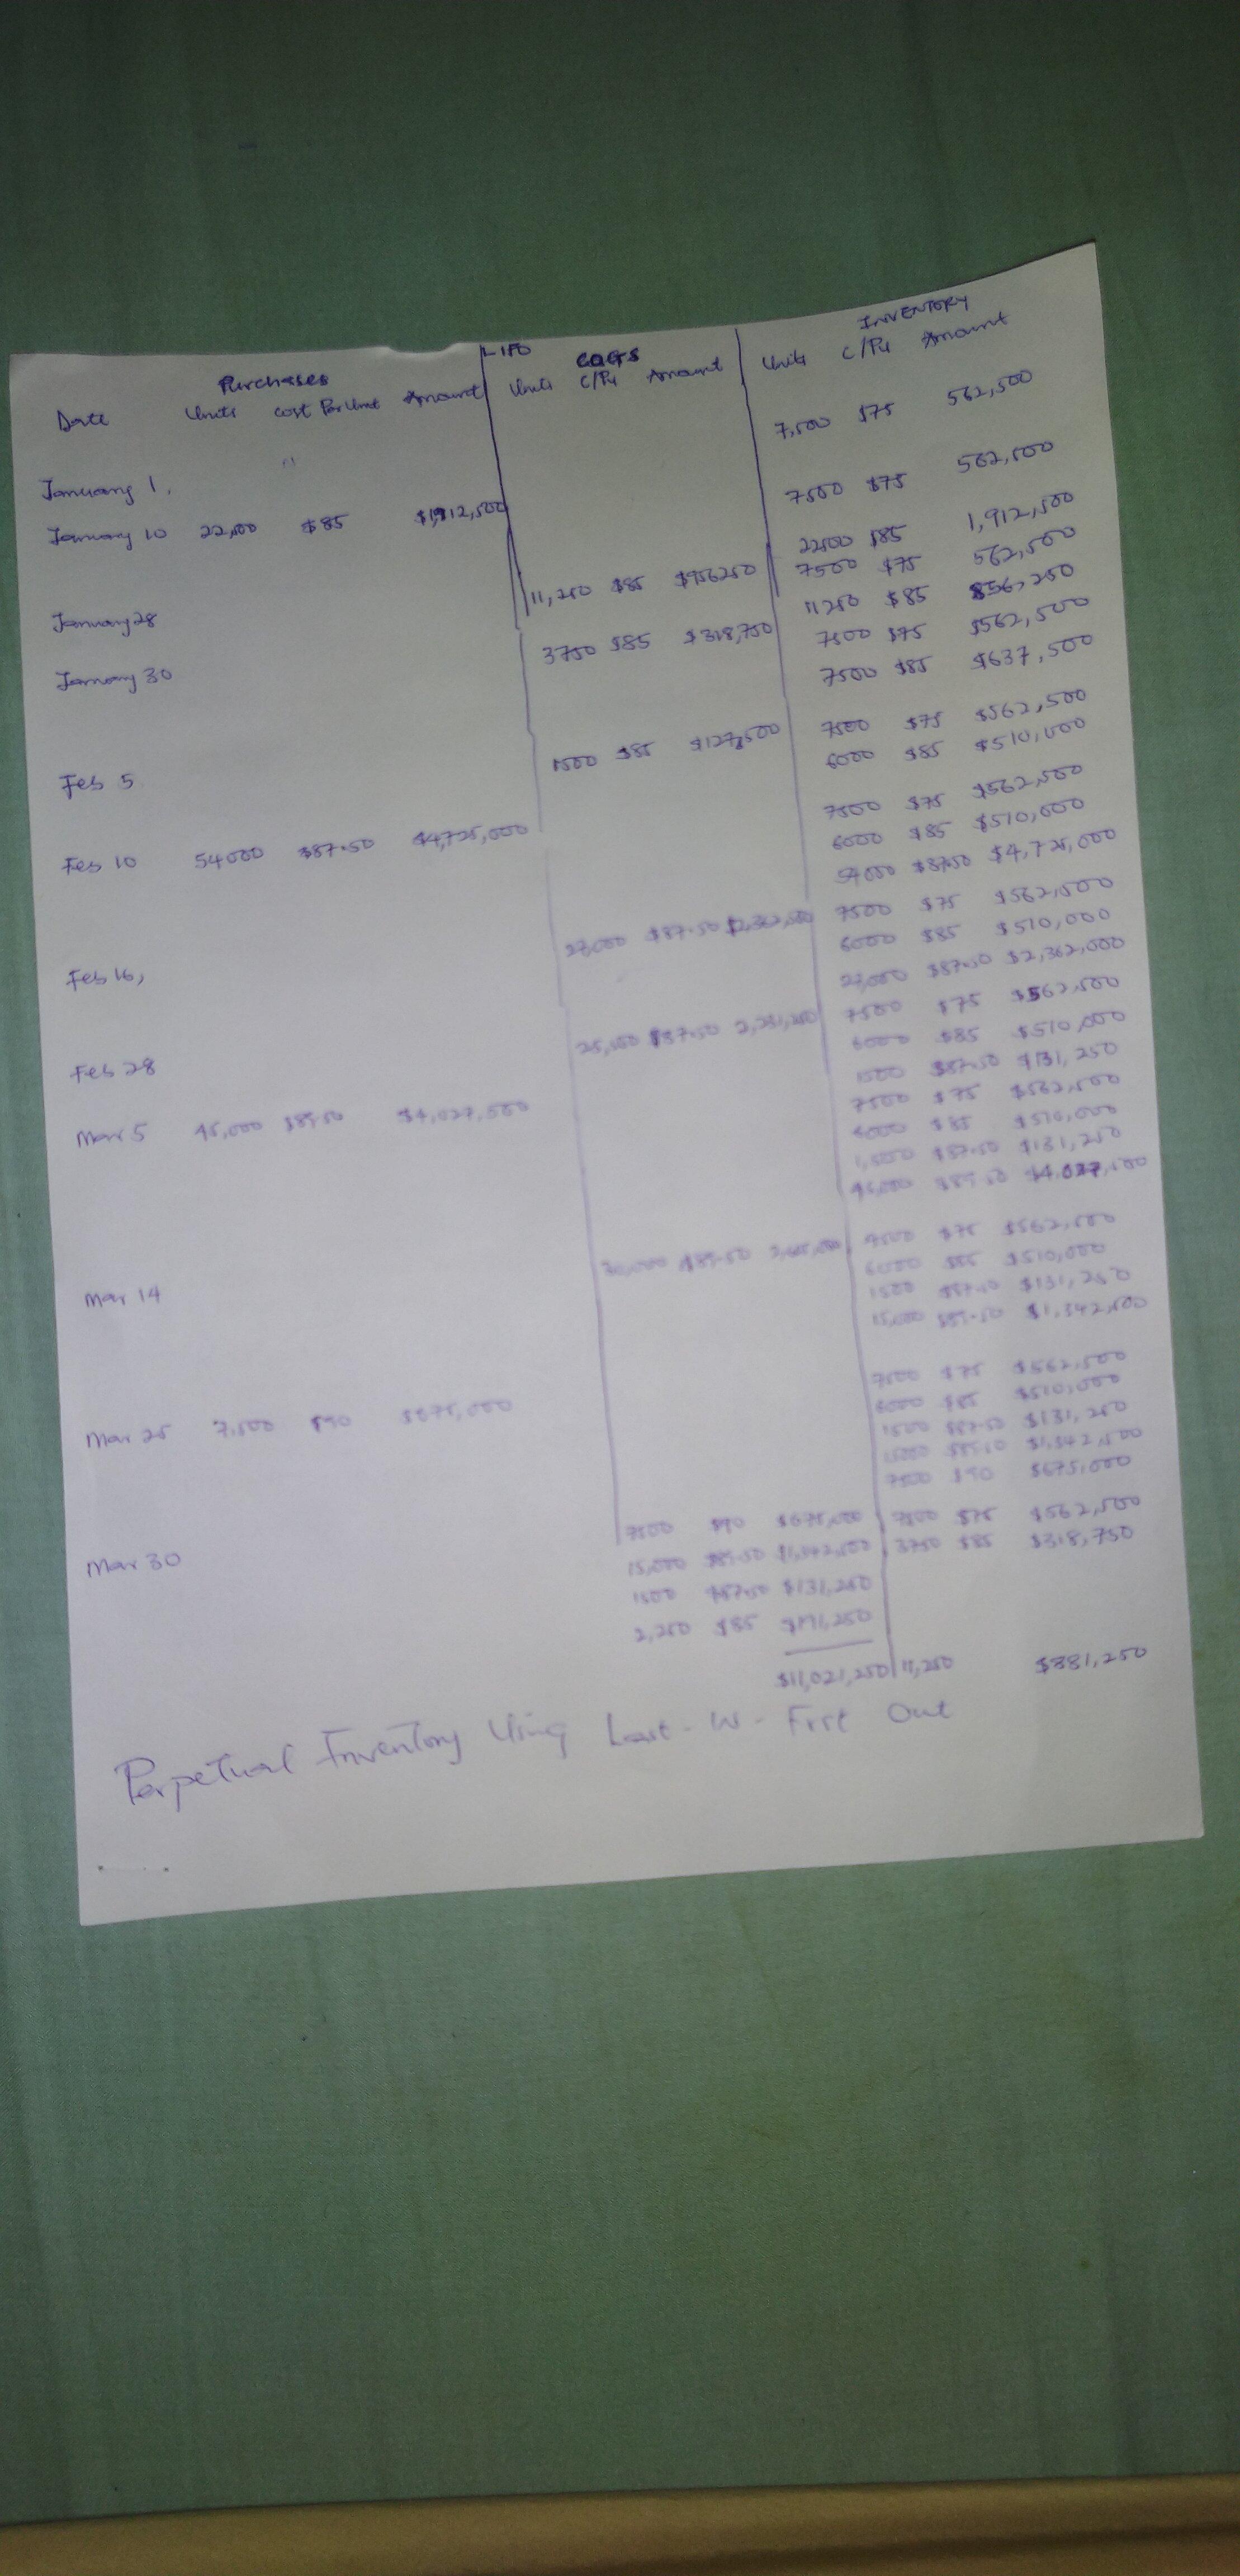 LIFO COGS INVENTORY
Purchases
Date Units Cost Per Unit Amount Units C/PU Amount Units C/PU Amount
January 1, 7,500 $75 562,500
7500 $75 562,500
January 10 22,500 $85 $1,912,500 22500 $85 1,912,500
January 28 11,250 $85 $956250 7500 $75 562,500
11250 $85 856,250
January 30 3750 $85 $318,750 7500 $75 $562,500
7500 $85 $637,500
Feb 5 1500 $85 $127,500 7500 $75 $562,500
6000 $85 $510,000
Feb 10 54000 $87.50 $4,725,000 7500 $75 $562,500
6000 $85 $510,000
54000 $87.50 $4,725,000
Feb 16, 27,000 $87.50 7500 $75 $562,500
6000 $85 $510,000
27,000 $87.50 $2,362,000
Feb 28 $87.50 2,231,250 7500 $75 $562,500
6000 $85 $510,000
1500 $87.50 $131,250
Mar 5 45,000 $89.50 $4,027,500 7500 $75 $562,500
6000 $85 $510,000
1,500 $87.50 $131,250
45,000 $89.50 $4,027,500
Mar 14 30,000 $89.50 2,685,000 7500 $75 $562,500
6000 $85 $510,000
1500 $87.50 $131,250
15,000 $89.50 $1,342,500
Mar 25 7,500 $90 $675,000 7500 $75 $562,500
6000 $85 $510,000
1500 $87.50 $131,250
15000 $89.50 $1,342,500
7500 $90 $675,000
Mar 30 7500 $90 $675,000 7500 $75 $562,500
15,000 $89.50 $1,342,500 3750 $85 $318,750
1500 $87.50 $131,250
2,250 $85 $191,250
$11,021,250 11,250 $881,250
Perpetual Inventory Using Last-IN-First Out